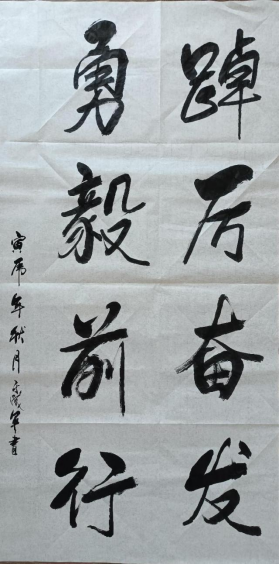 踔厉奋发
勇毅前行
寅虎年秋月 军书